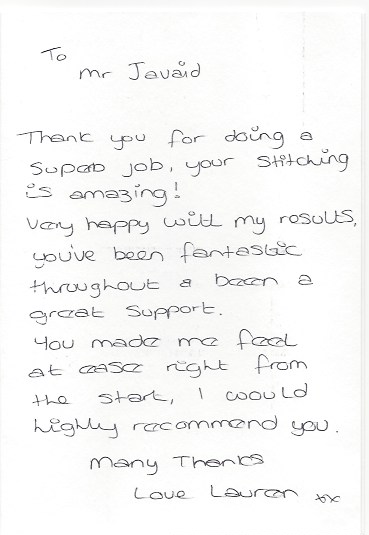 To
Mr Javaid
Thank you for doing a
superb job, your stitching
is amazing!
Very happy with my results,
you've been fantastic
throughout & been a
great support.
You made me feel
at ease right from
the start, I would
highly recommend you.
Many Thanks
Love Lauren xx